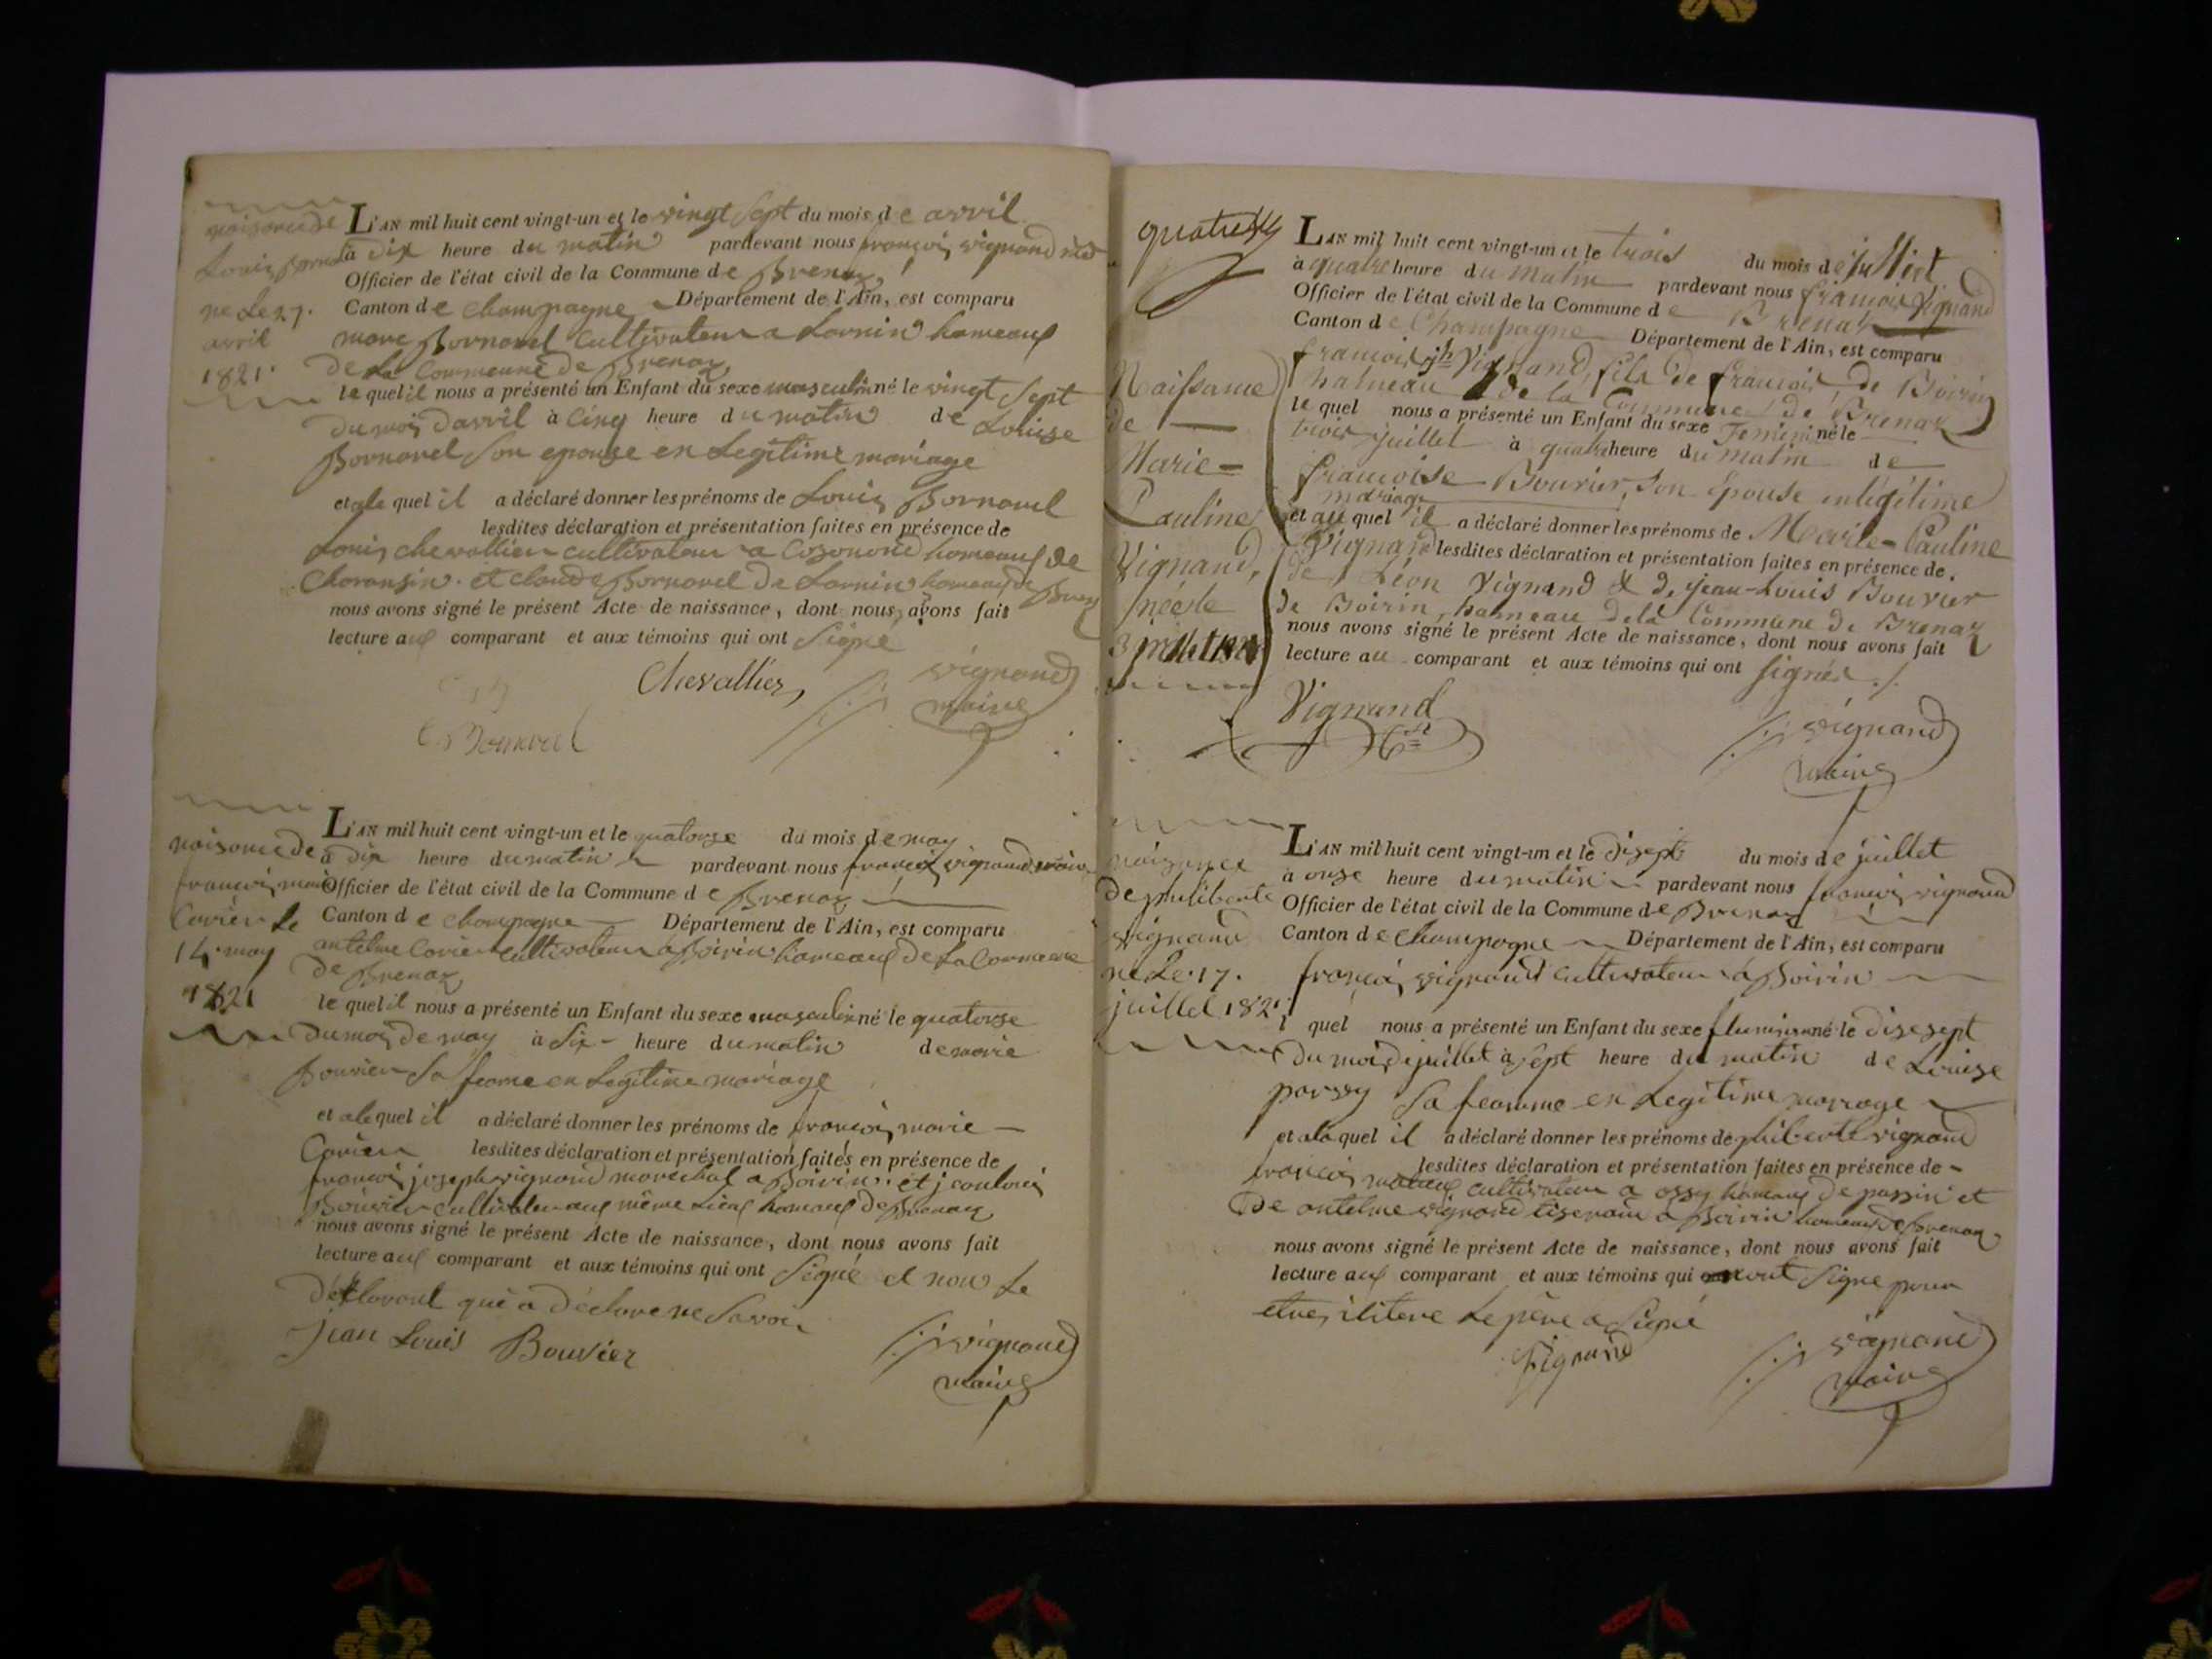 naisance de
Louis Bornarel
né le 27.
avril
1821.
L'AN mil huit cent vingt-un et le vingt Sept du mois de avril
à Dix heure du matin pardevant nous françois vignand
Officier de l'état civil de la Commune de Brenaz
Canton de Champagne Département de l'Ain, est comparu
marc Bornarel Cultivateur a hameaux
De La Commune de Brenaz
lequel il nous a présenté un Enfant du sexe masculin né le vingt Sept
Du mois Davril à Cinq heure du matin de Louise
Bornarel Son epouse en Legitime mariage
et ale quel il a déclaré donner les prénoms de Louis Bornarel
lesdites déclaration et présentation faites en présence de
Louis chevallier cultivateur a hameaux de
et Claude Bornarel De hameaux de Brenaz
nous avons signé le présent Acte de naissance, dont nous avons fait
lecture aux comparant et aux témoins qui ont Signé
Chevallier vignand
maire
Bornarel
naisance de
françois marie
Carrier le
14 may
1821
L'AN mil huit cent vingt-un et le quatorse du mois de may
à dix heure du matin pardevant nous françois vignand maire
Officier de l'état civil de la Commune de Brenaz
Canton de Champagne Département de l'Ain, est comparu
antelme Cultivateur a Boirin hameaux de La Commune
De Brenaz
le quel il nous a présenté un Enfant du sexe masculin né le quatorse
Du mois de may à Six heure du matin de marie
Bouvier Sa femme en Legitime mariage
et ale quel il a déclaré donner les prénoms de françois marie
lesdites déclaration et présentation faites en présence de
françois joseph vignand marechal a Boirin et jean louis
Bouvier cultivateur aux même Lieux hameaux de Brenaz
nous avons signé le présent Acte de naissance, dont nous avons fait
lecture aux comparant et aux témoins qui ont Signé et non Le
Déclarant qui a Déclare ne Savoir
Jean Louis Bouvier vignand
maire
quatre
Naissance
de
Marie-
Pauline
Vignand,
née le
3 juillet 1821
L'AN mil huit cent vingt-un et le trois du mois de juillet
à quatre heure du matin pardevant nous françois Vignand
Officier de l'état civil de la Commune de Brenaz
Canton de Champagne Département de l'Ain, est comparu
françois jh Vignand, fils de françois de Boirin
hameau de la Commune de Brenaz
le quel nous a présenté un Enfant du sexe Feminin né le
trois juillet à quatre heure du matin de
françoise Bouvier, son Epouse en légitime
mariage
et au quel il a déclaré donner les prénoms de Marie-Pauline
Vignand lesdites déclaration et présentation faites en présence de
de Léon Vignand & de Jean-Louis Bouvier
de Boirin, hameau de la Commune de Brenaz
nous avons signé le présent Acte de naissance, dont nous avons fait
lecture au comparant et aux témoins qui ont signés ./.
Vignand
vignand
maire
naissance
de philiberte
vignand
né Le 17.
juillet 1821
L'AN mil huit cent vingt-un et le disept du mois de juillet
à onze heure du matin pardevant nous françois vignand
Officier de l'état civil de la Commune de Brenaz
Canton de Champagne Département de l'Ain, est comparu
françois vignand cultivateur à Boirin
l quel nous a présenté un Enfant du sexe né le disesept
Du mois de juillet à Sept heure du matin de Louise
Sa feamme en Legitime mariage
et ala quel il a déclaré donner les prénoms de philiberte vignand
lesdites déclaration et présentation faites en présence de
françois cultivateur a ossy hameaux de passin et
De antelme vignand tiserand a Boirin hameaux de Brenaz
nous avons signé le présent Acte de naissance, dont nous avons fait
lecture aux comparant et aux témoins qui ont Signe pour
etres ilitere Le père a Signé
Vignand
vignand
maire